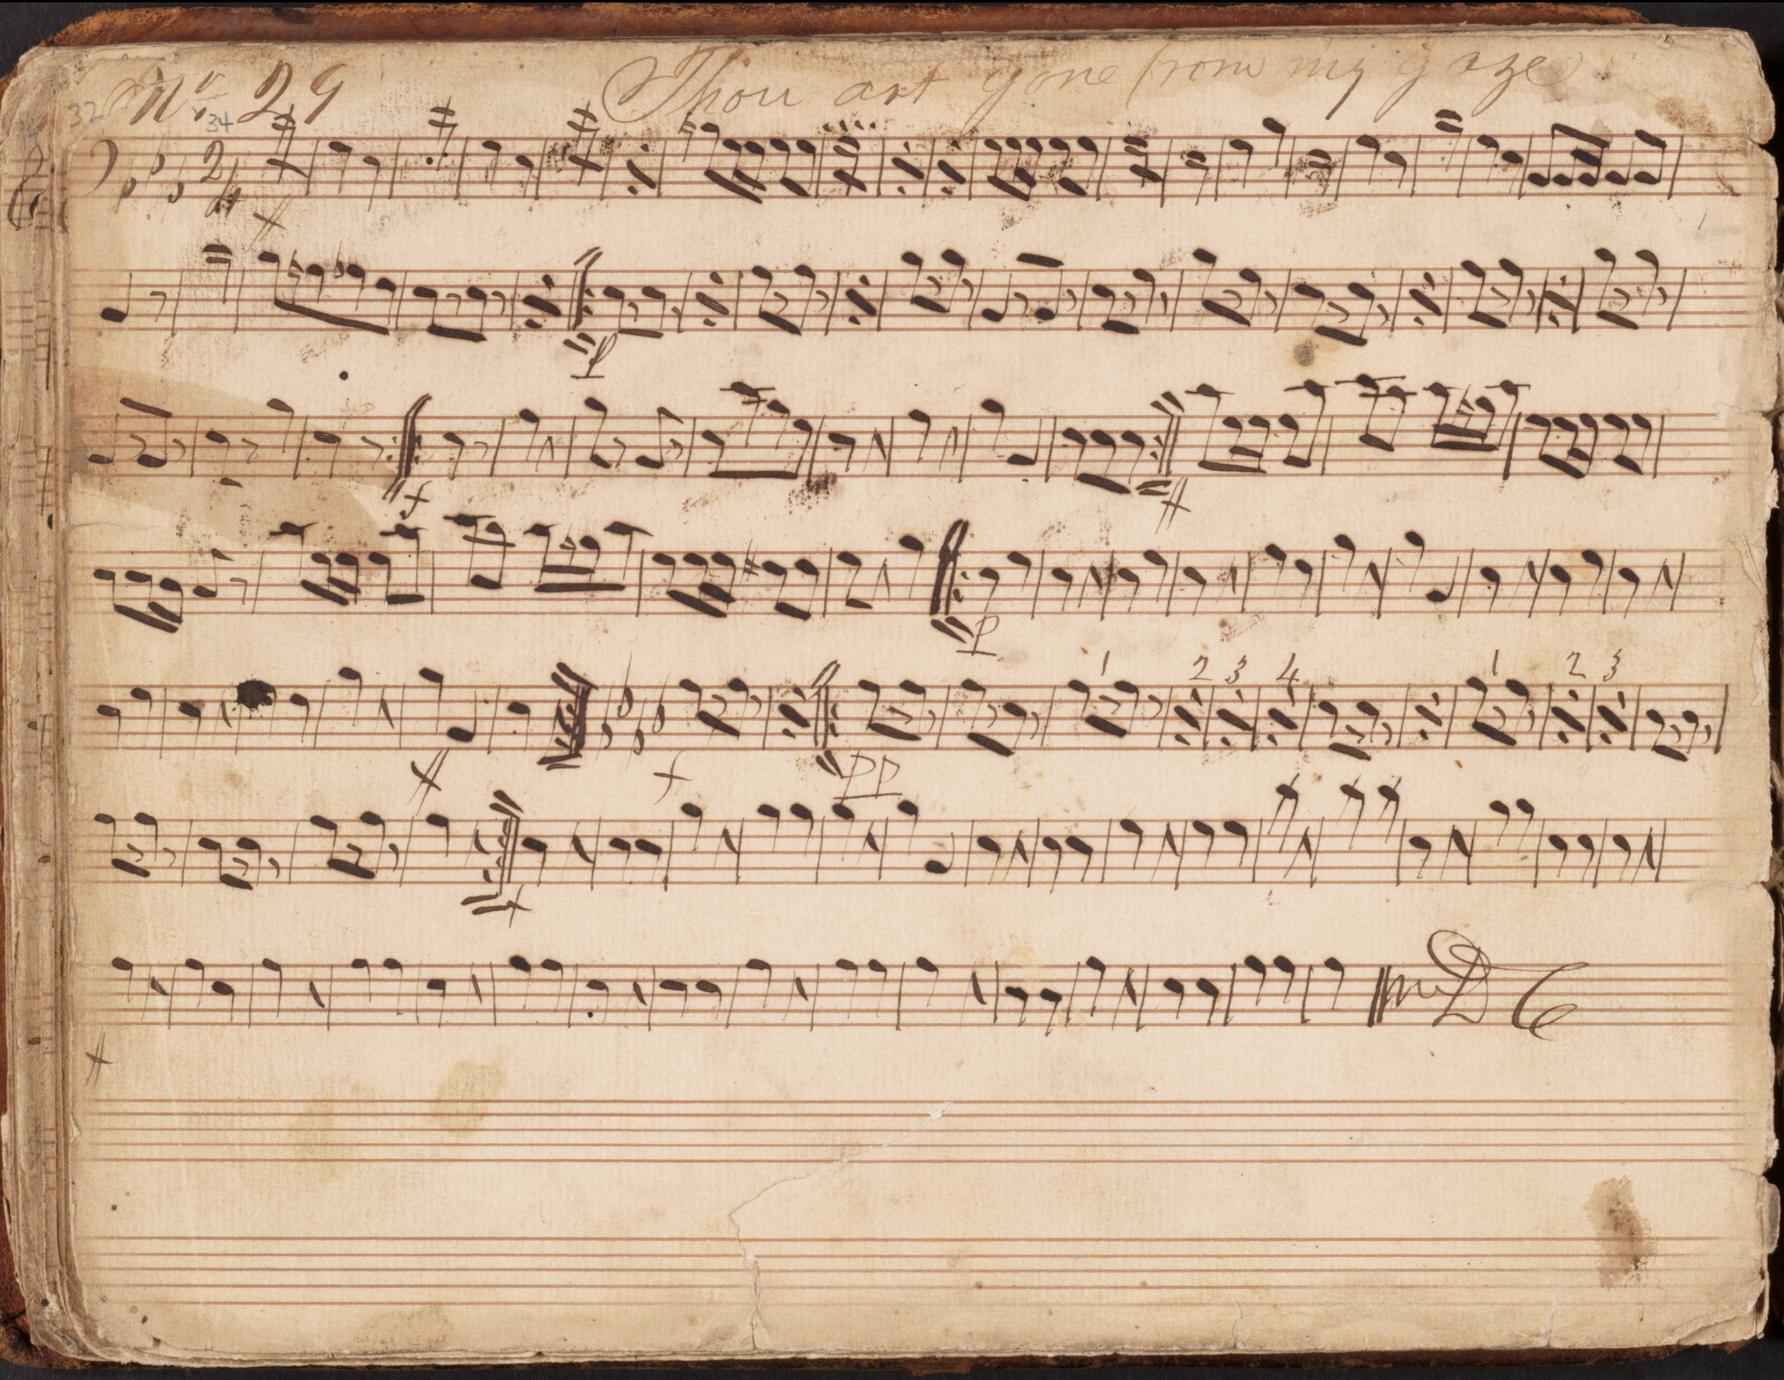 No. 29 Thou art gone from my gaze
32
34
2/4
ff
p
f
ff
p
1 2 3 4 1 2 3
ff f pp
f
ff